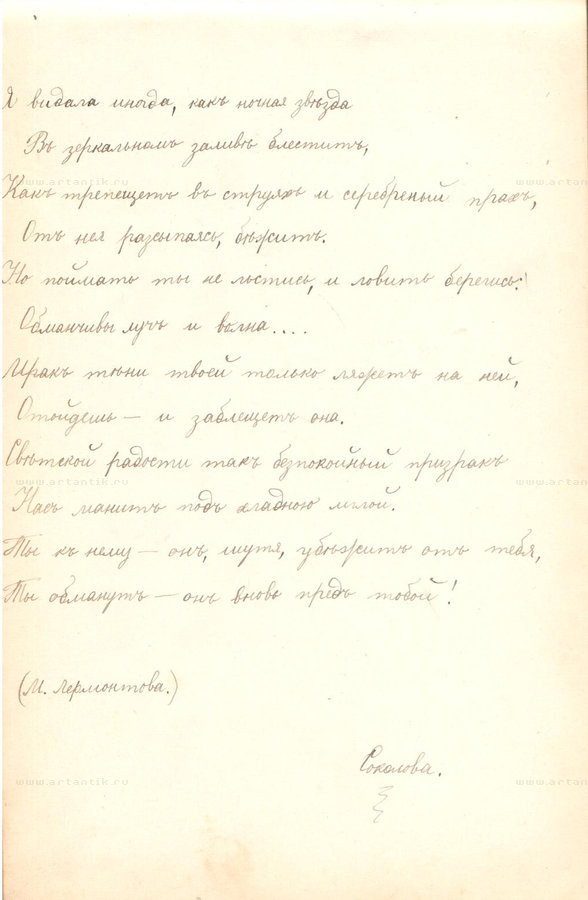 Я видала иногда, какъ ночная звѣзда
Въ зеркальномъ заливѣ блеститъ,
Какъ трепещетъ въ струяхъ и серебреный прахъ,
Отъ нея разсыпаясь, бѣжитъ.
Но поймать ты не льстись, и ловить берегись:
Обманчивы лучъ и волна....
Мракъ тѣни твоей только ляжетъ на ней,
Отойдешь — и заблещетъ она.
Свѣтской радости такъ безпокойный призракъ
Насъ манитъ подъ хладною мглой.
Ты къ нему — онъ, шутя, убѣжитъ отъ тебя,
Ты обманутъ — онъ вновь предъ тобой!
(М. Лермонтова.)
Соколова.
www.artantik.ru